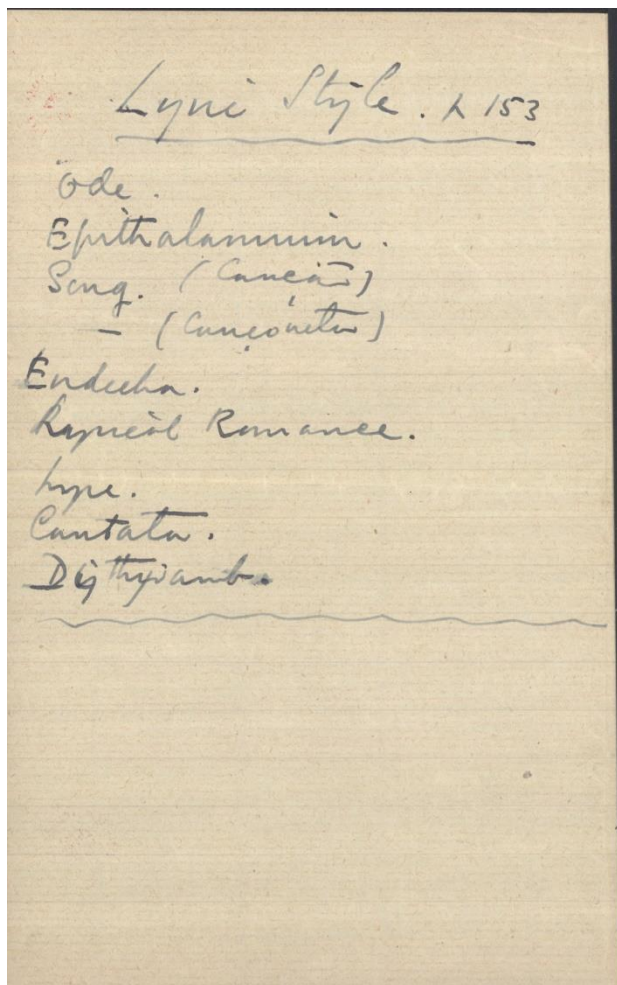 Lyric Style. L 153
Ode.
Epithalamium.
Song. (Canção)
— (Cançoneta)
Endecha.
Lyrical Romance.
Lyre.
Cantata.
Dithyramb.